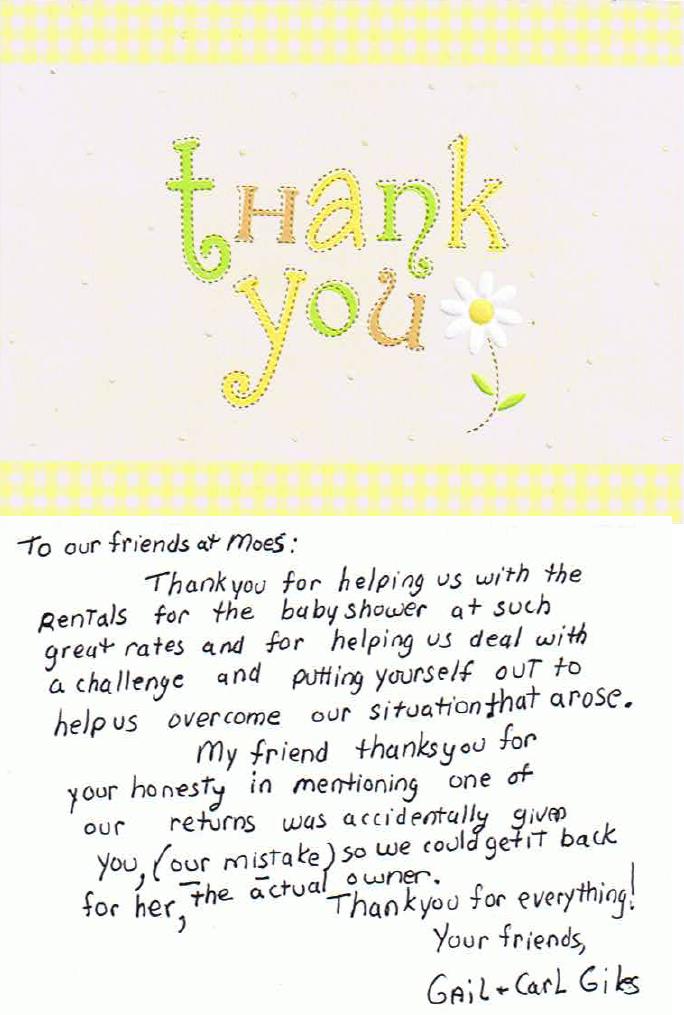 thank
you
To our friends at Moes:
Thank you for helping us with the
Rentals for the baby shower at such
great rates and for helping us deal with
a challenge and putting yourself out to
help us overcome our situation that arose.
My friend thanks you for
your honesty in mentioning one of
our returns was accidentally given
you, (our mistake) so we could get it back
for her, the actual owner.
Thank you for everything!
Your friends,
Gail + Carl Giles